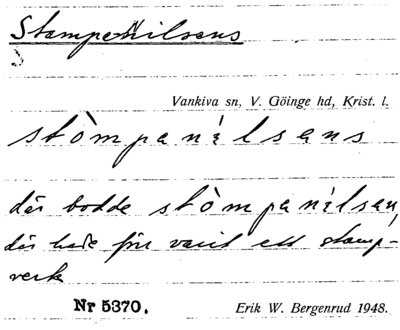 Stampe-Nilsens
Vankiva sn, V. Göinge hd, Krist. l.
stòmpanìlsens
där bodde stòmpanìlsen,
där hade förr varit ett stamp-
verk
Nr 5370.
Erik W. Bergenrud 1948.